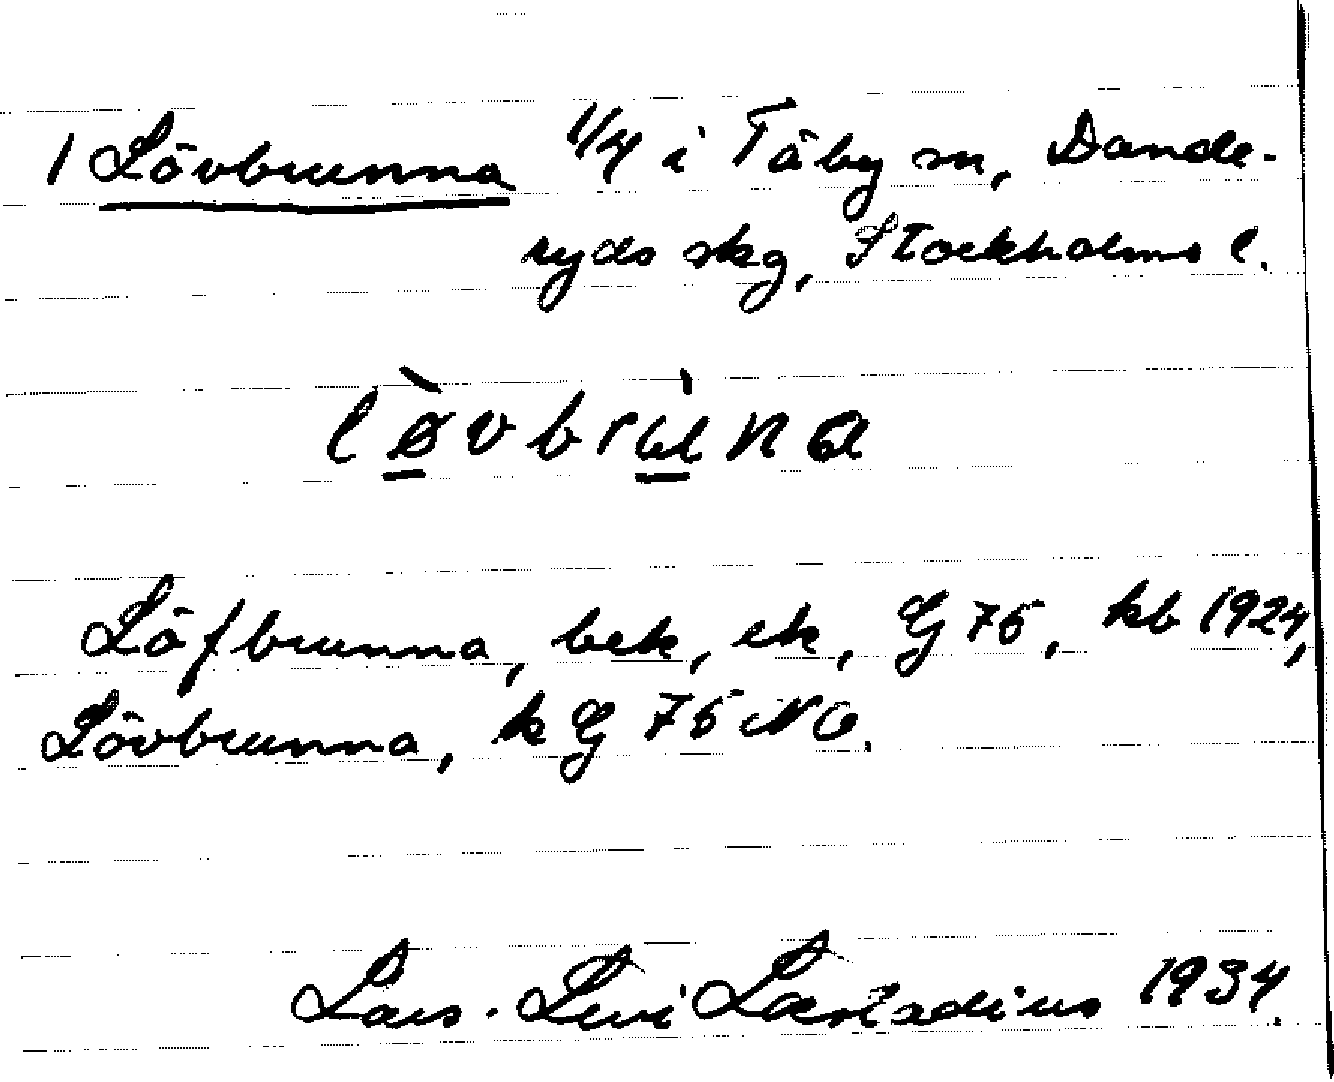 1 Lövbrunna 1/4 i Täby sn, Dande-
ryds skg, Stockholms l.
lø̀vbrùna
Löfbrunna, bek, ek, G 75, kb 1924,
Lövbrunna, k G 75 NO.
Lars-Levi Læstadius 1934.